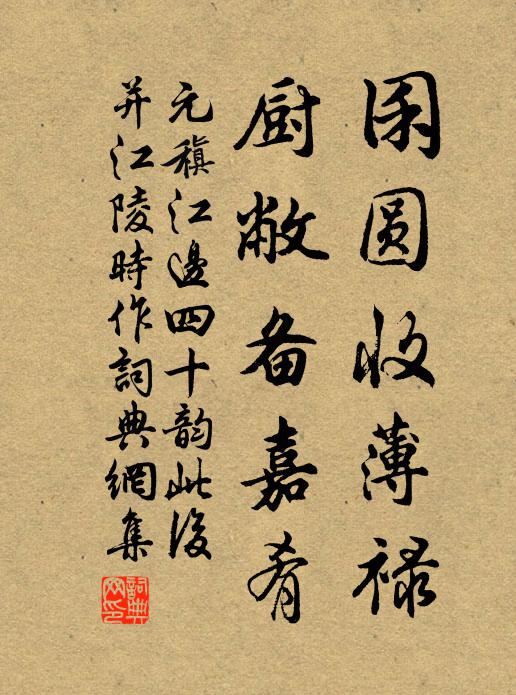 囷圆收薄禄
厨敝备嘉肴
元稹江邊四十韵此後
并江陵時作詞典網集
詞典网印